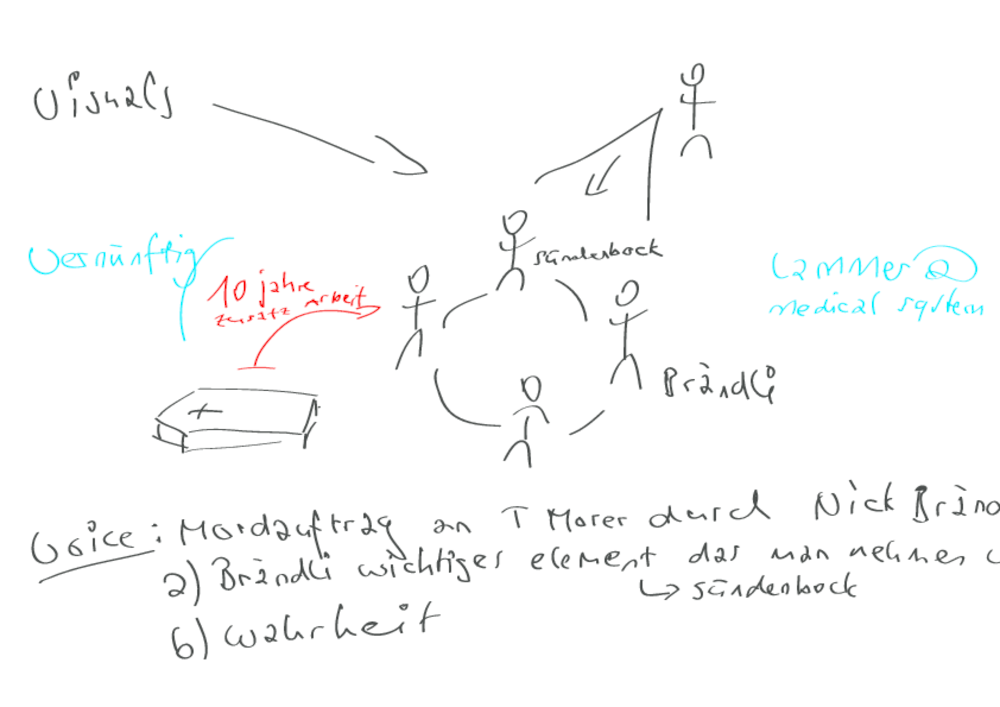 Visuals
Vernünftig
10 jahre
zusatz arbeit
Sündenbock
Lammer @
medical system
Brändli
Voice: Mordauftrag an T Morer durch Nick Bränd
a) Brändli wichtiges element das man nehmen
↳ Sündenbock
b) Wahrheit